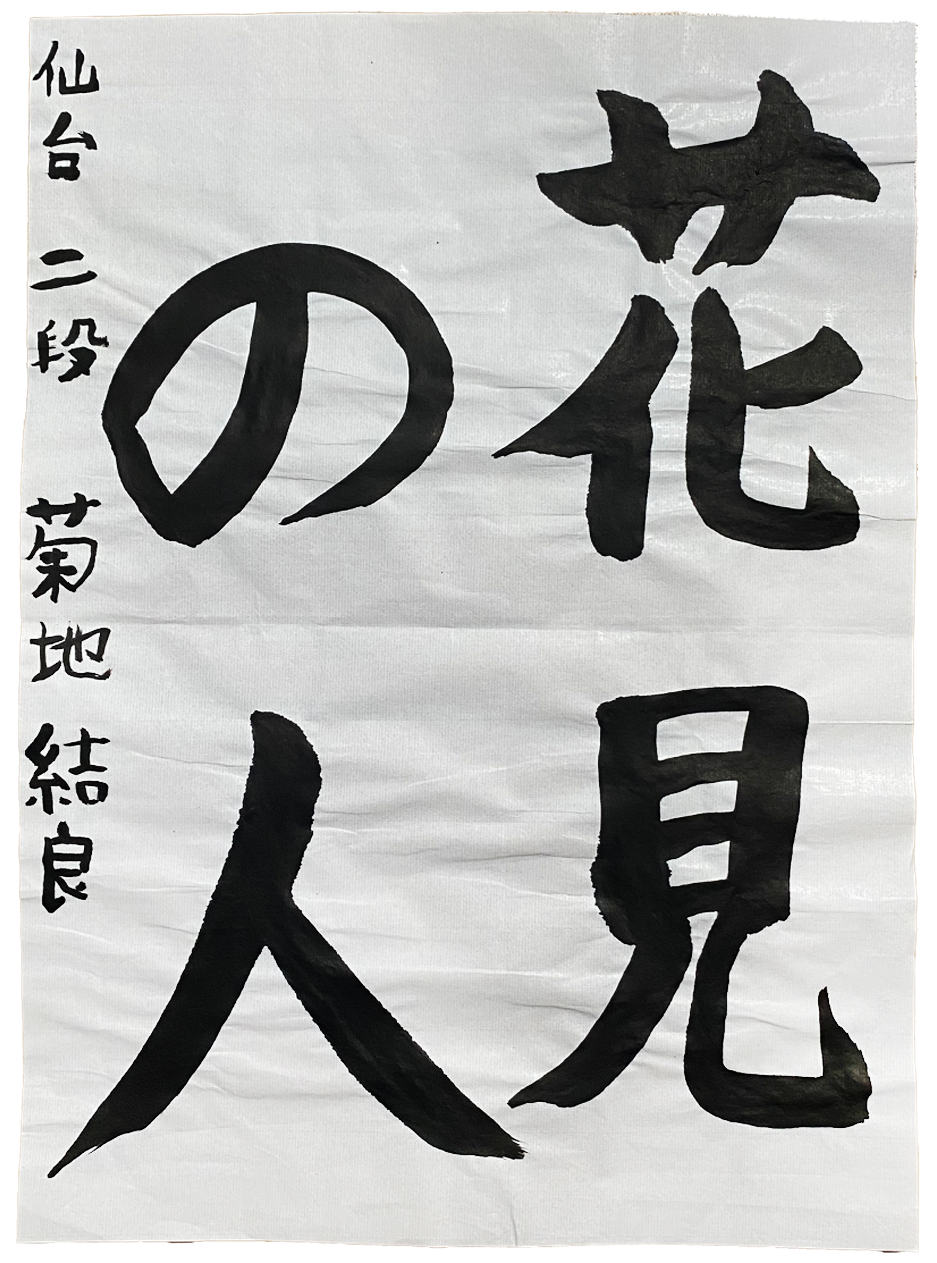 花見
の人
仙台 二段 菊地 結良